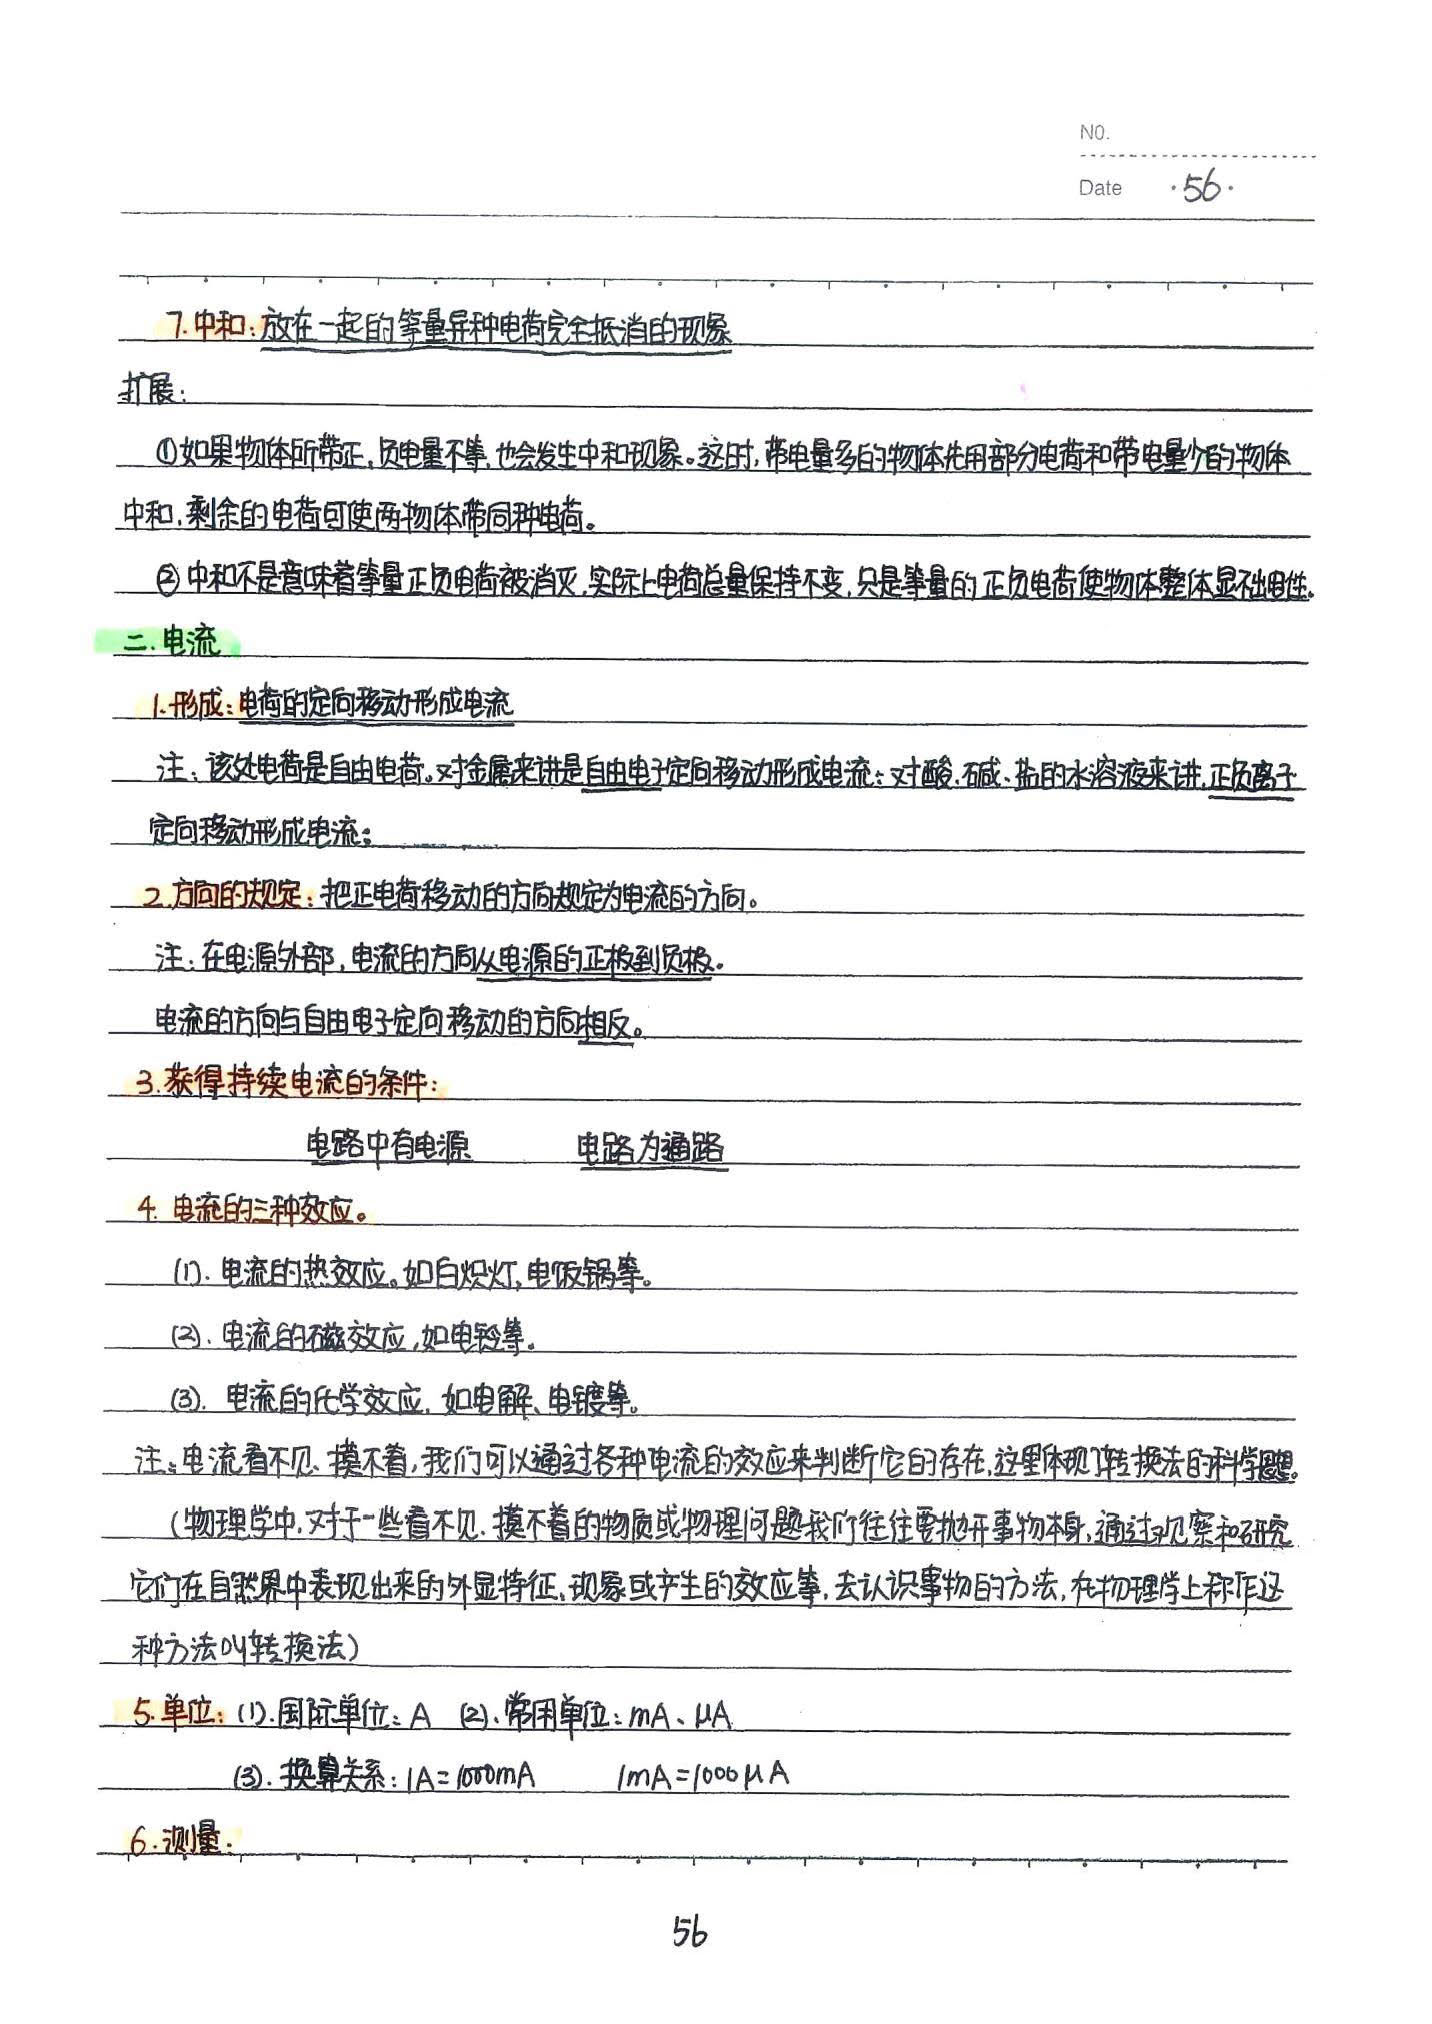 NO.
Date ·56·
7.中和:放在一起的等量异种电荷完全抵消的现象
扩展:
①如果物体所带正、负电量不等,也会发生中和现象。这时,带电量多的物体先用部分电荷和带电量少的物体
中和,剩余的电荷可使两物体带同种电荷。
②中和不是意味着等量正负电荷被消灭,实际上电荷总量保持不变,只是等量的正负电荷使物体整体显不出电性。
二.电流
1.形成:电荷的定向移动形成电流
注:该处电荷是自由电荷。对金属来讲是自由电子定向移动形成电流;对酸、碱、盐的水溶液来讲,正负离子
定向移动形成电流;
2.方向的规定:把正电荷移动的方向规定为电流的方向。
注:在电源外部,电流的方向从电源的正极到负极。
电流的方向与自由电子定向移动的方向相反。
3.获得持续电流的条件:
电路中有电源 电路为通路
4. 电流的三种效应。
(1). 电流的热效应。如白炽灯,电饭锅等。
(2). 电流的磁效应,如电铃等。
(3). 电流的化学效应,如电解、电镀等。
注:电流看不见、摸不着,我们可以通过各种电流的效应来判断它的存在,这里体现了转换法的科学思想。
(物理学中,对于一些看不见、摸不着的物质或物理问题我们往往要抛开事物本身,通过观察和研究
它们在自然界中表现出来的外显特征、现象或产生的效应等,去认识事物的方法,在物理学上称作这
种方法叫转换法)
5.单位:(1).国际单位:A (2).常用单位:mA、μA
(3).换算关系:1A=1000mA 1mA=1000μA
6.测量:
56